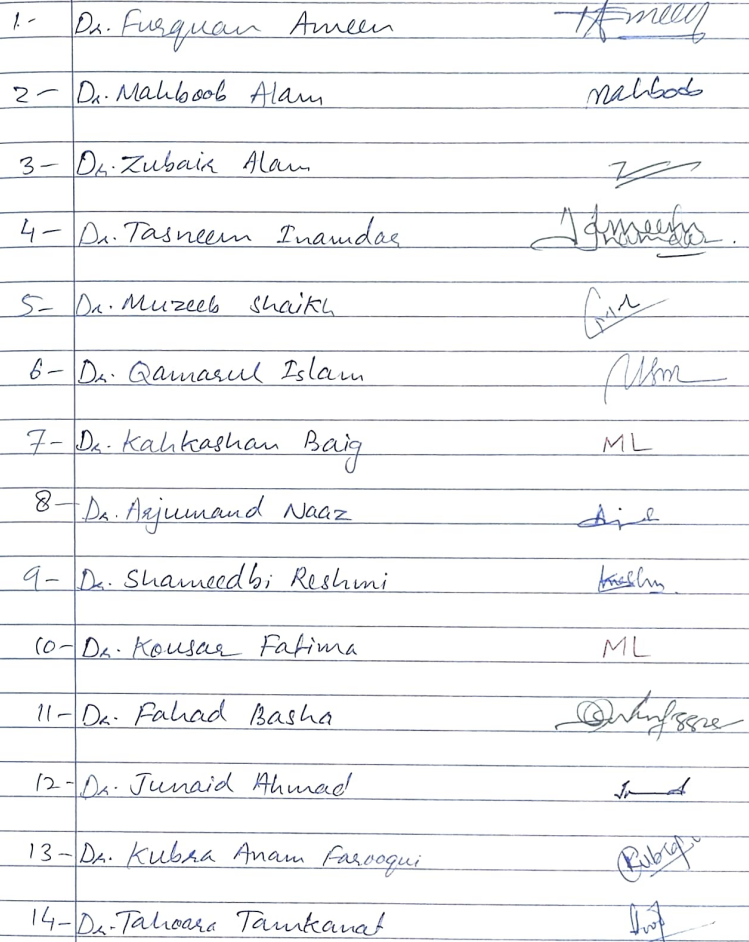 1- Dr. Furquan Ameen Ameen
2- Dr. Mahboob Alam Mahboob
3- Dr. Zubair Alam
4- Dr. Tasneem Inamdar
5- Dr. Muzeeb Shaikh
6- Dr. Qamarul Islam
7- Dr. Kahkashan Baig ML
8- Dr. Arjumand Naaz
9- Dr. Shameedbi Reshmi
10- Dr. Kousar Fatima ML
11- Dr. Fahad Basha
12- Dr. Junaid Ahmad
13- Dr. Kubra Anam Farooqui
14- Dr. Tahoora Tamkanat